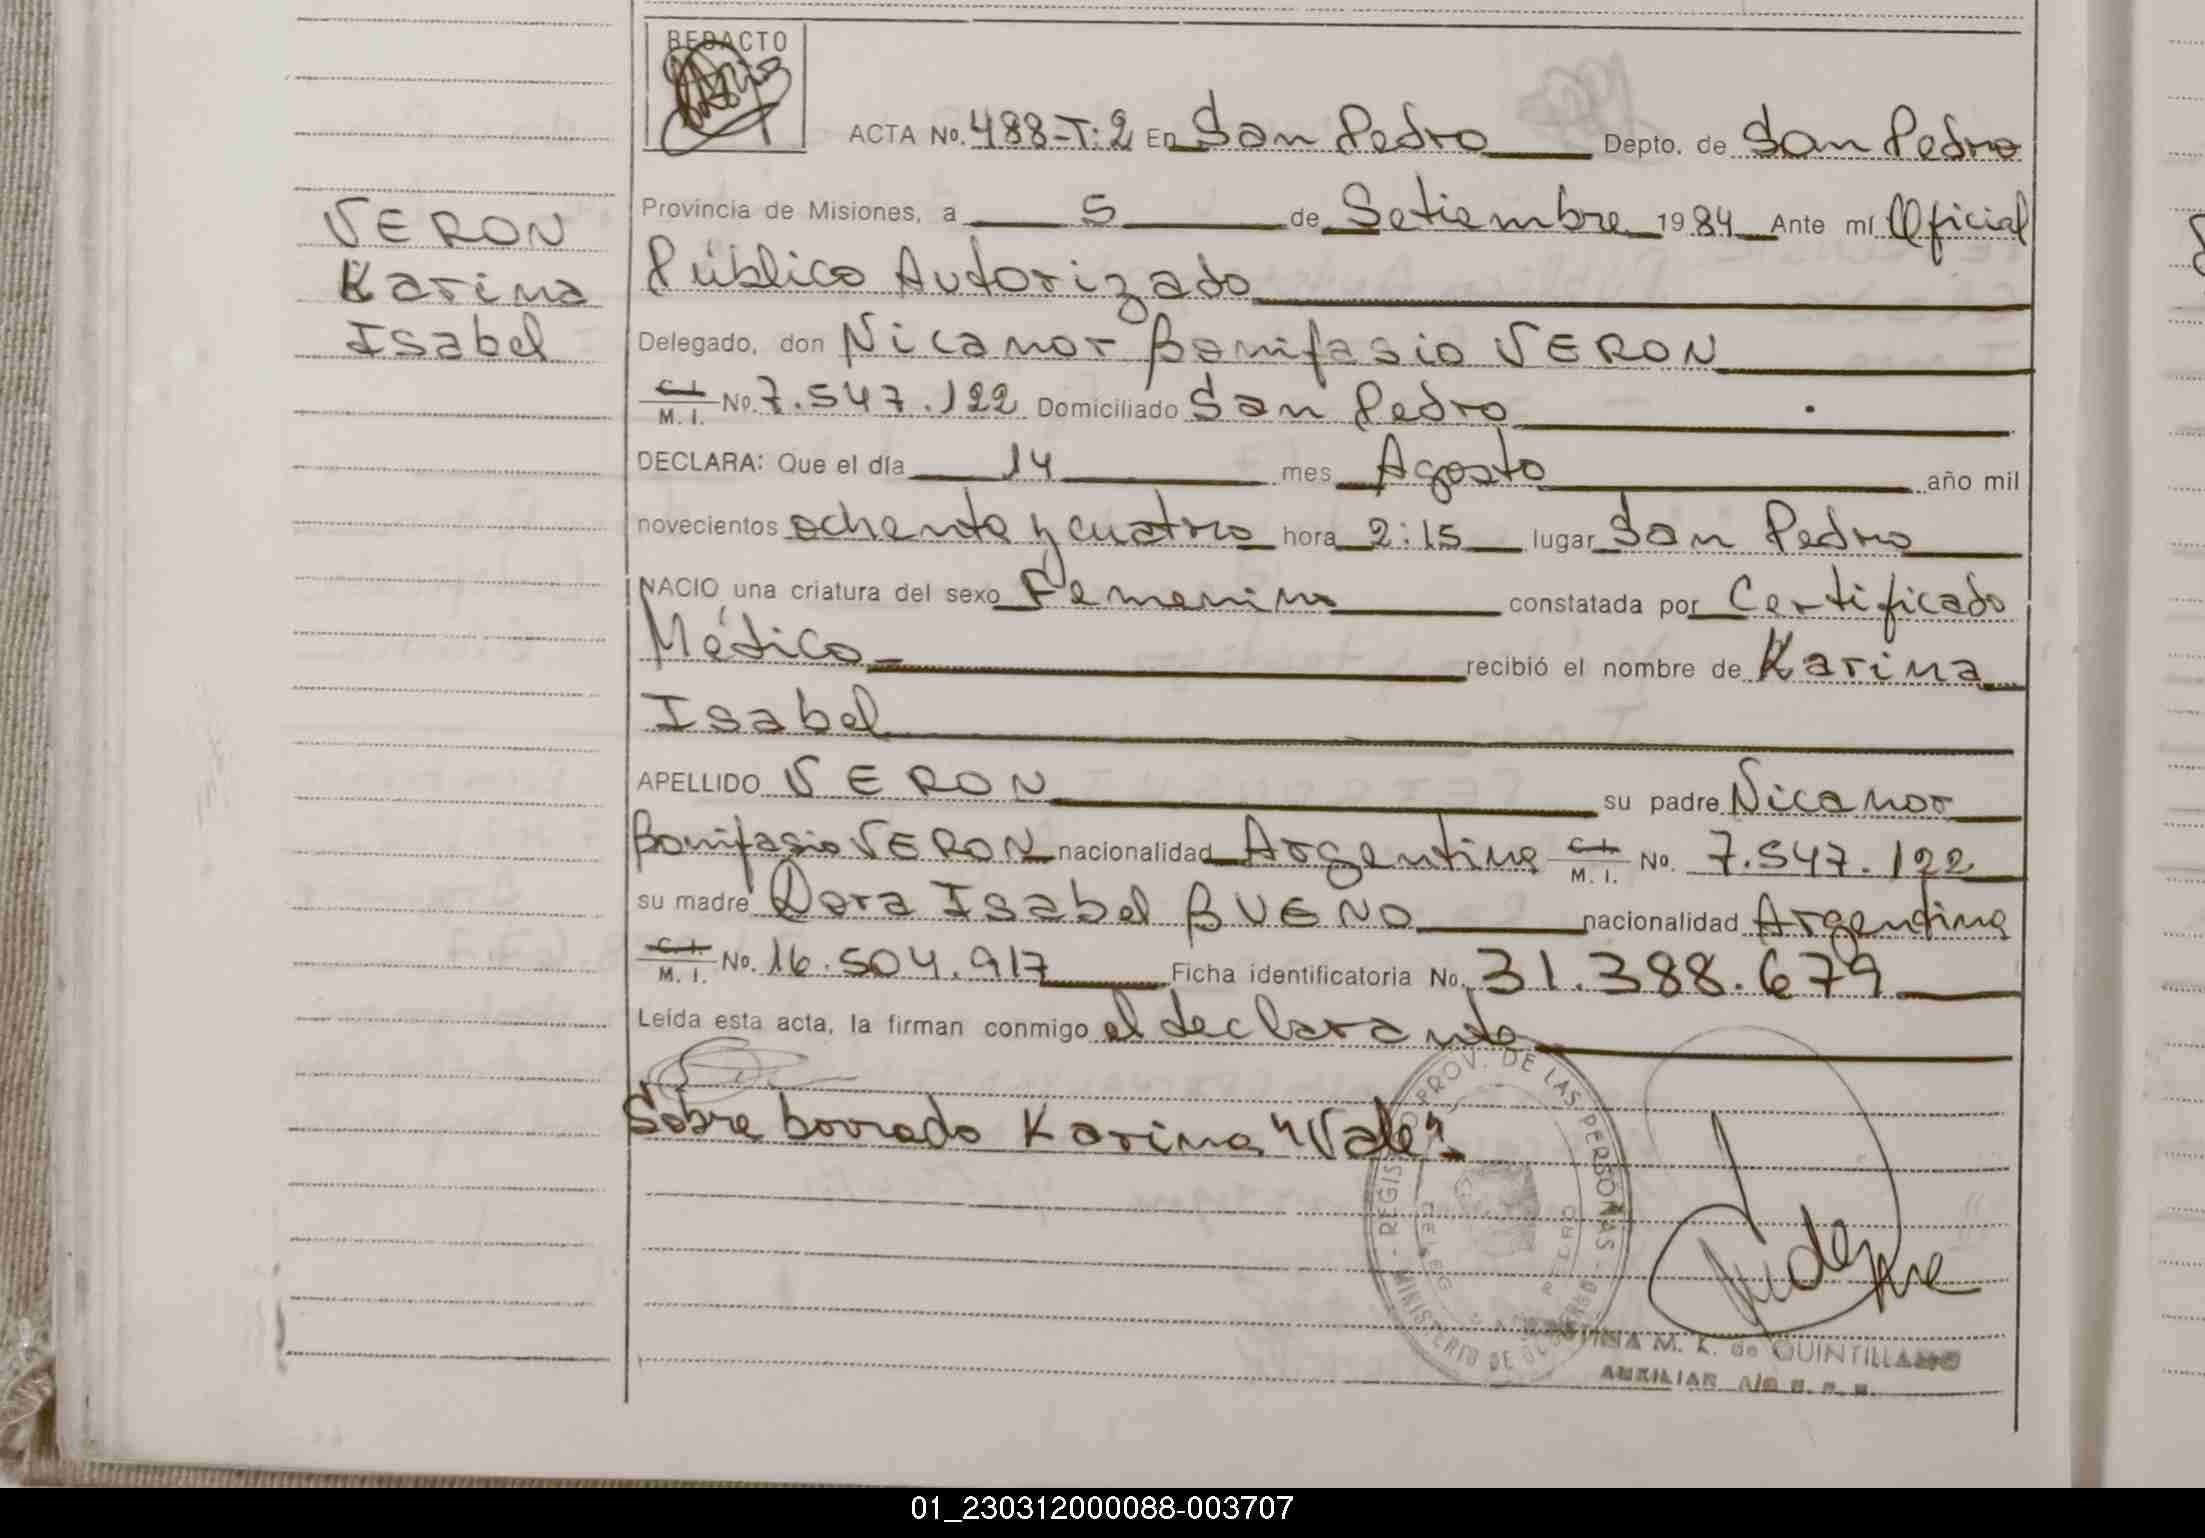 REDACTO
ACTA No. 488-T:2 En San Pedro Depto. de San Pedro
Provincia de Misiones, a 5 de Setiembre 1984 Ante mí Oficial
Público Autorizado
Delegado, don Nicanor Bonifasio VERON
C.I. M. I. No. 7.547.122 Domiciliado San Pedro
DECLARA: Que el día 14 mes Agosto año mil
novecientos ochenta y cuatro hora 2:15 lugar San Pedro
NACIO una criatura del sexo Femenino constatada por Certificado
Médico recibió el nombre de Karina
Isabel
APELLIDO VERON su padre Nicanor
Bonifasio VERON nacionalidad Argentina C.I. M. I. No. 7.547.122
su madre Dora Isabel BUENO nacionalidad Argentina
C.I. M. I. No. 16.504.917 Ficha identificatoria No. 31.388.679
Leída esta acta, la firman conmigo el declarante
Sobre borrado Karina "Vale".
VERON
Karina
Isabel
PROV. DE LAS PERSONAS
MINISTERIO DE GOBIERNO
M. K. de QUINTILLANO
AUXILIAR
01_230312000088-003707